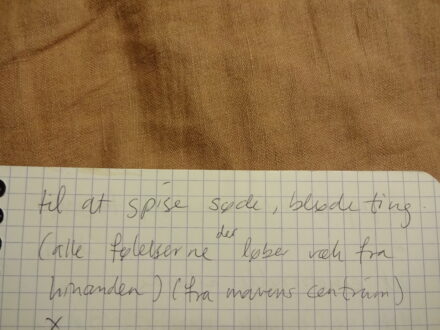 til at spise søde, bløde ting.
(alle følelserne der løber væk fra
hinanden) (fra mavens centrum)
x